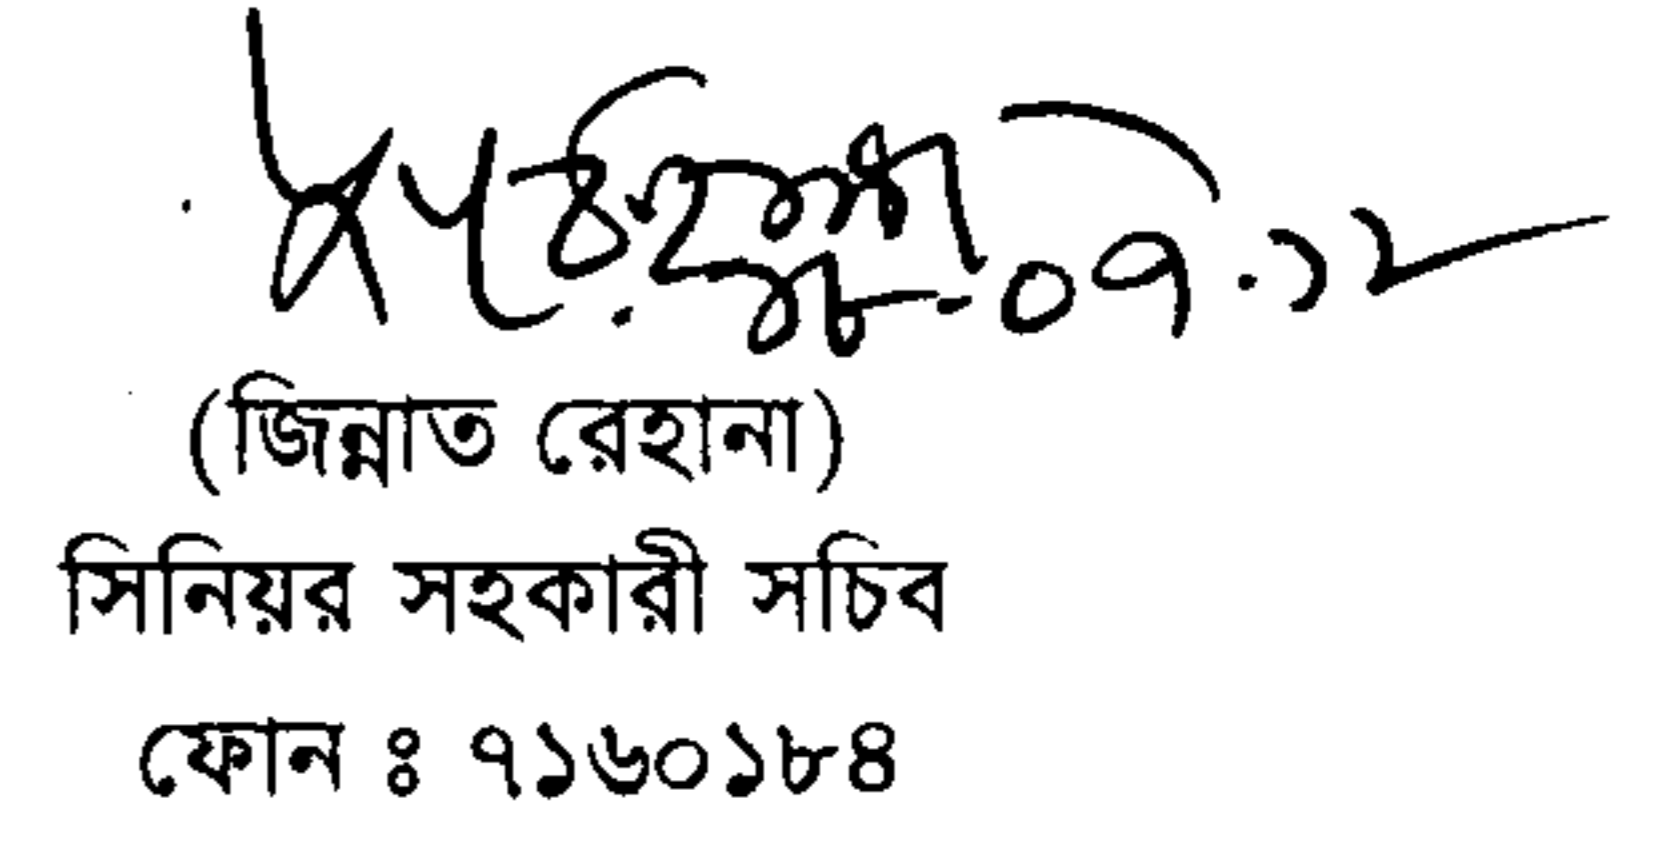 (জিন্নাত রেহানা)
সিনিয়র সহকারী সচিব
ফোন ঃ ৭১৬০১৮৪